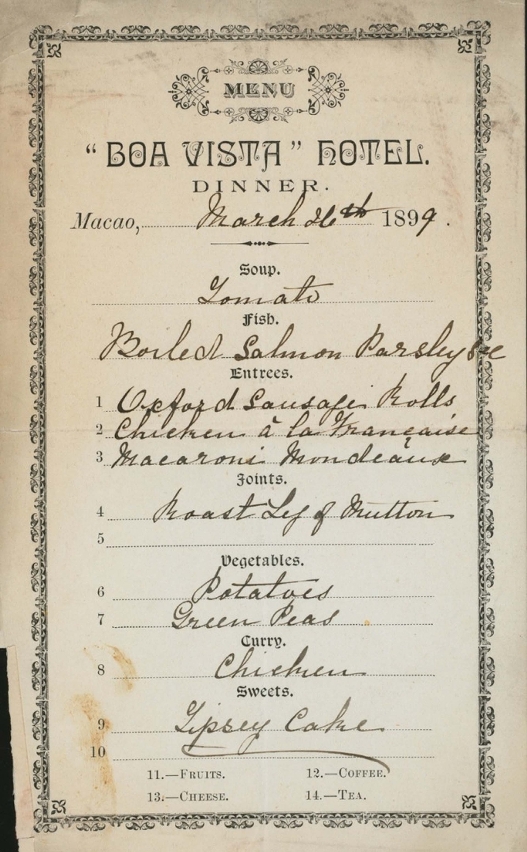 MENU
"BOA VISTA" HOTEL.
DINNER.
Macao, March 26th 1899.
Soup.
Tomato
Fish.
Boiled Salmon Parsley Sce
Entrees.
1 Oxford Sausage Rolls
2 Chicken à la Française
3 Macaroni
Joints.
4 Roast Leg of Mutton
5
Vegetables.
6 Potatoes
7 Green Peas
Curry.
8 Chicken
Sweets.
9 Tipsey Cake
10
11.—FRUITS. 12.—COFFEE.
13.—CHEESE. 14.—TEA.